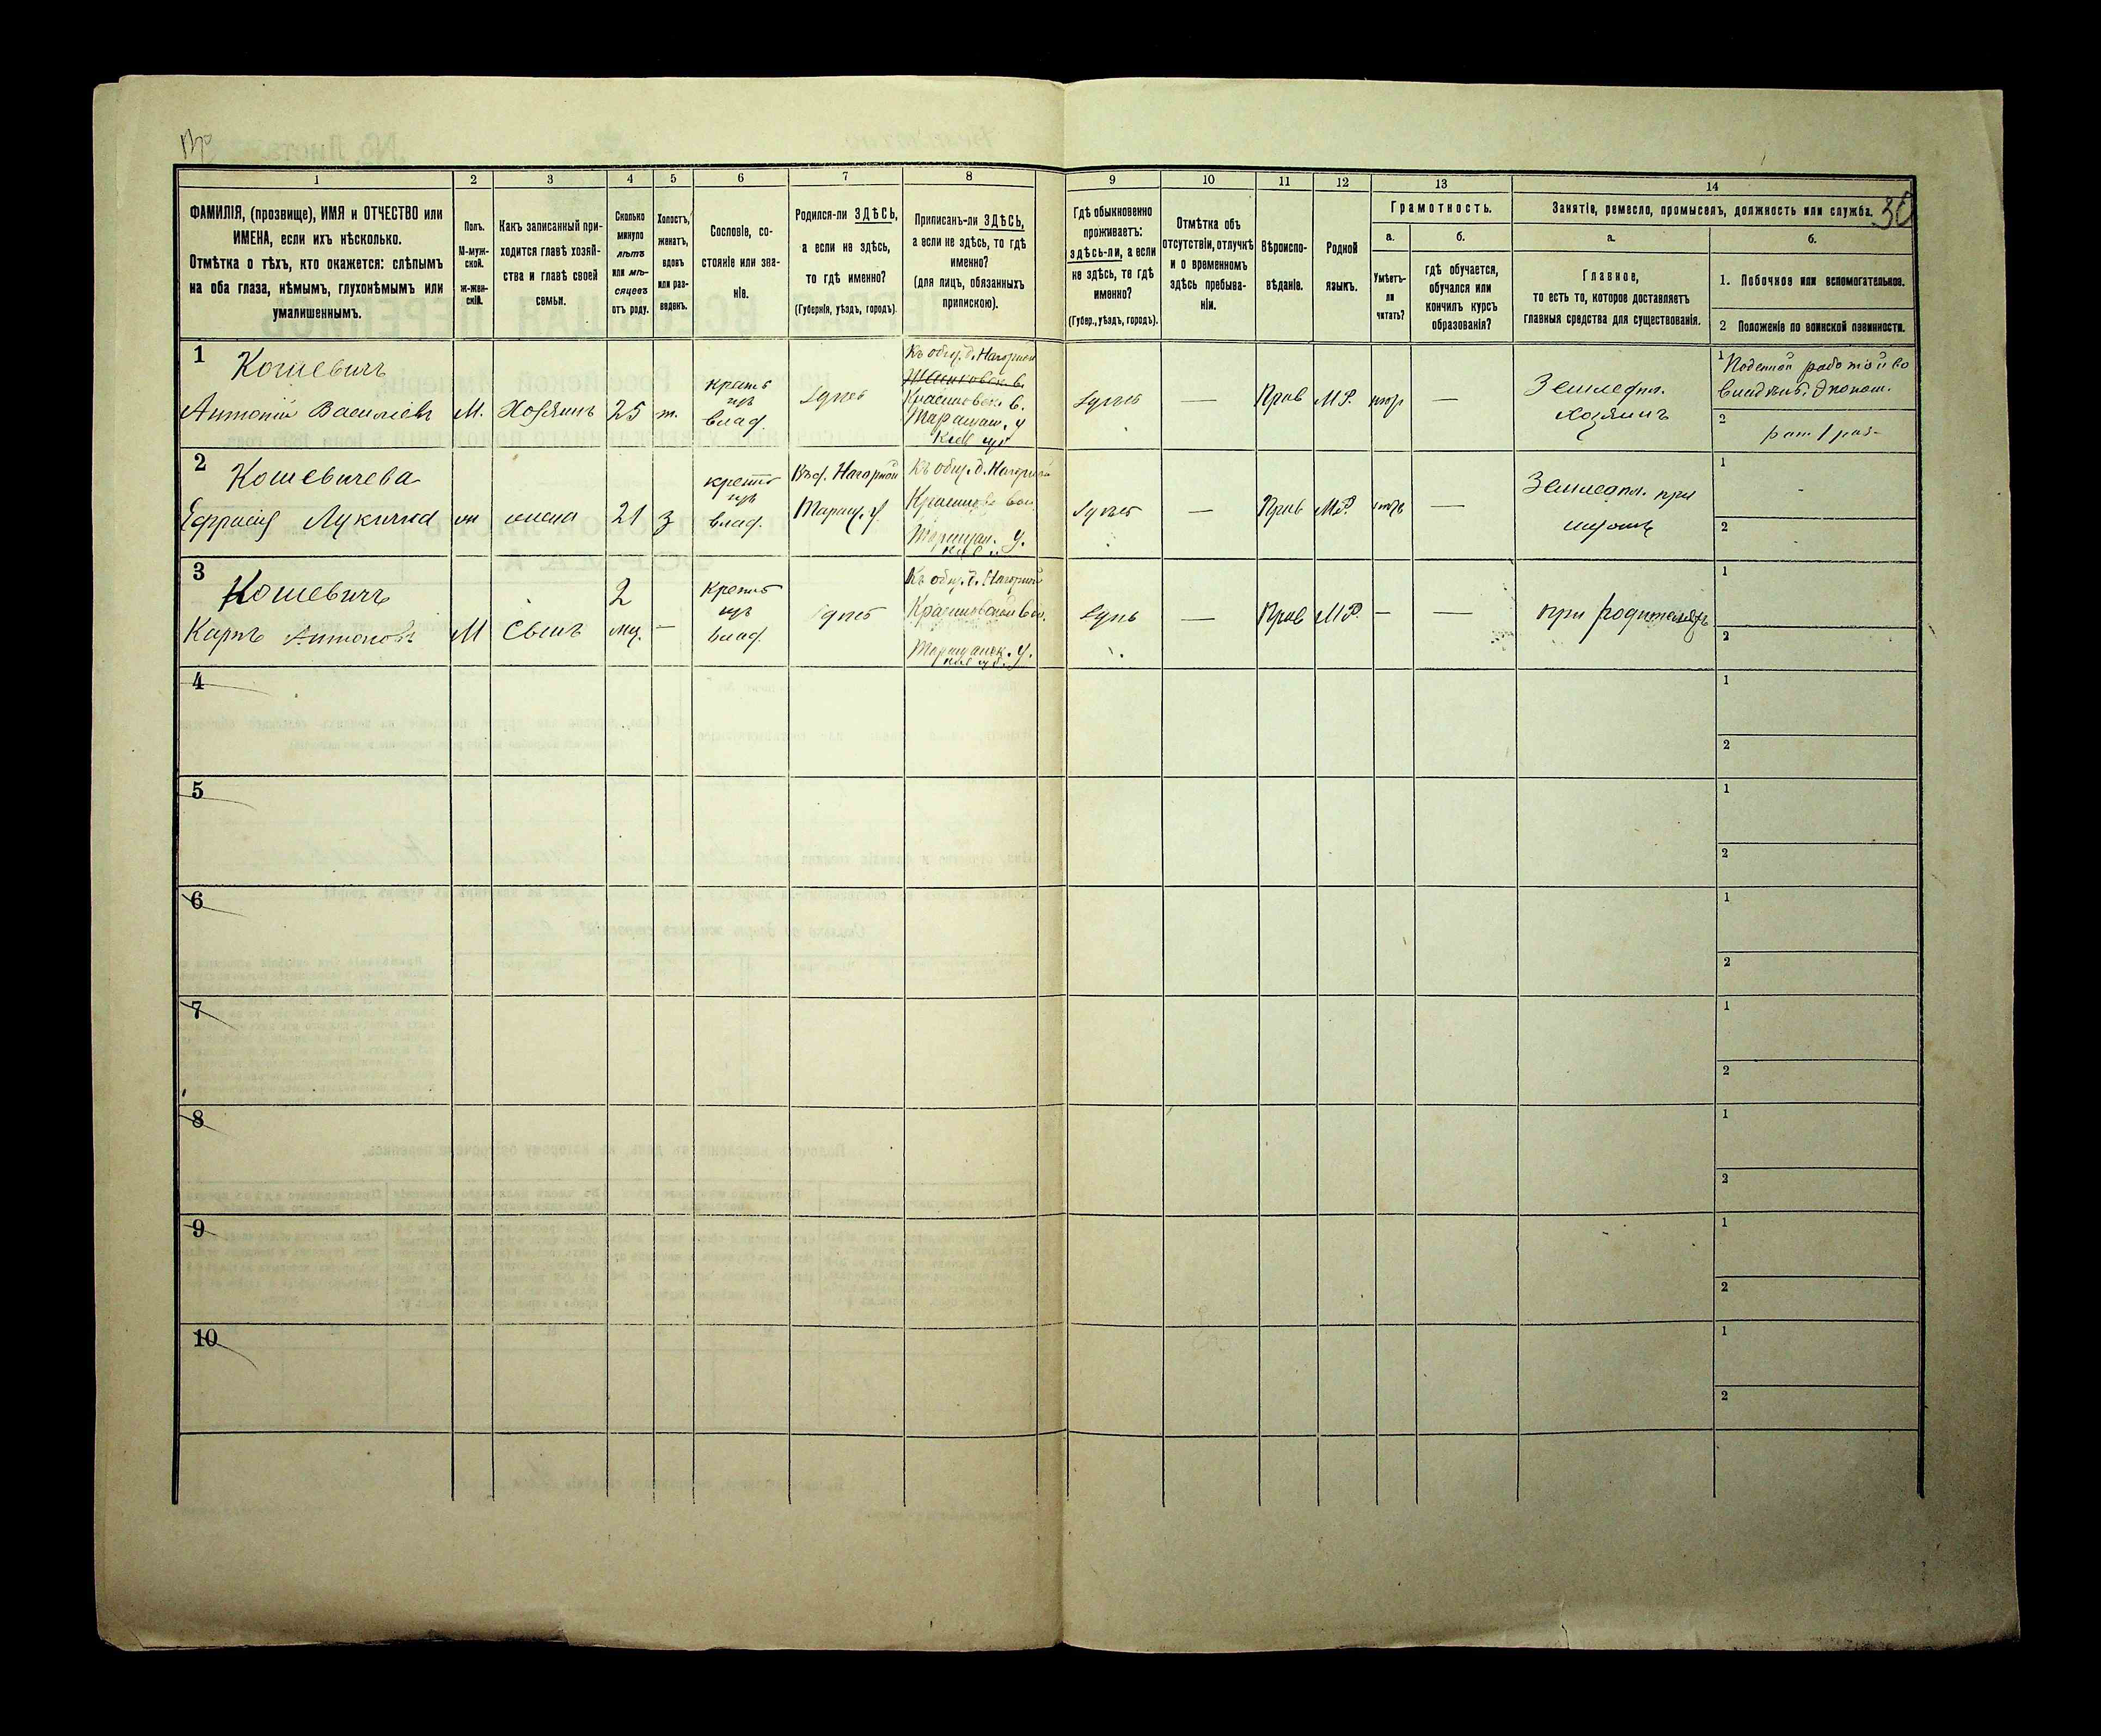 1
2
3
4
5
6
7
8
9
10
11
12
13
14
30
ФАМИЛІЯ, (прозвище), ИМЯ и ОТЧЕСТВО или
ИМЕНА, если ихъ нѣсколько.
Отмѣтка о тѣхъ, кто окажется: слѣпымъ
на оба глаза, нѣмымъ, глухонѣмымъ или
умалишеннымъ.
Полъ.
М-муж-
ской.
ж-жен-
скій.
Какъ записанный при-
ходится главѣ хозяй-
ства и главѣ своей
семьи.
Сколько
минуло
лѣтъ
или мѣ-
сяцевъ
отъ роду.
Холостъ,
женатъ,
вдовъ
или раз-
веденъ.
Сословіе, со-
стояніе или зва-
ніе.
Родился-ли ЗДѢСЬ,
а если не здѣсь,
то гдѣ именно?
(Губернія, уѣздъ, городъ).
Приписанъ-ли ЗДѢСЬ,
а если не здѣсь, то гдѣ
именно?
(для лицъ, обязанныхъ
припискою).
Гдѣ обыкновенно
проживаетъ:
здѣсь-ли, а если
не здѣсь, то гдѣ
именно?
(Губер., уѣздъ, городъ).
Отмѣтка объ
отсутствіи, отлучкѣ
и о временномъ
здѣсь пребыва-
ніи.
Вѣроиспо-
вѣданіе.
Родной
языкъ.
Грамотность.
а.
Умѣетъ-
ли
читать?
б.
гдѣ обучается,
обучался или
кончилъ курсъ
образованія?
Занятіе, ремесло, промыселъ, должность или служба.
а.
Главное,
то есть то, которое доставляетъ
главныя средства для существованія.
б.
1. Побочное или вспомогательное.
2 Положеніе по воинской повинности.
1
Кошевичъ
Антоній Васильевъ
М.
Хозяинъ
25
крестъ
изъ
влад.
Къ общ. д. Нагорной
Таращан. у
Кіев губ
—
Прав
М.Р.
—
Земледѣл.
хозяинъ
1 Поденной работой во
2
рат 1 раз-
2
Кошевичева
Лукична
жена
21
З
крест
изъ
влад.
Въ д. Нагорной
Таращ. у.
Къ общ. д. Нагорной
Таращан. у.
—
Прав
М.Р.
—
Земледѣл. при
мужѣ
1
2
3
Кошевичъ
Карпъ Антоновъ
М
Сынъ
2
—
крест
изъ
влад.
Къ общ. д. Нагорной
Таращанск. у.
—
Прав
М.Р.
—
—
при родителяхъ
1
2
4
1
2
5
1
2
6
1
2
7
1
2
8
1
2
9
1
2
10
1
2